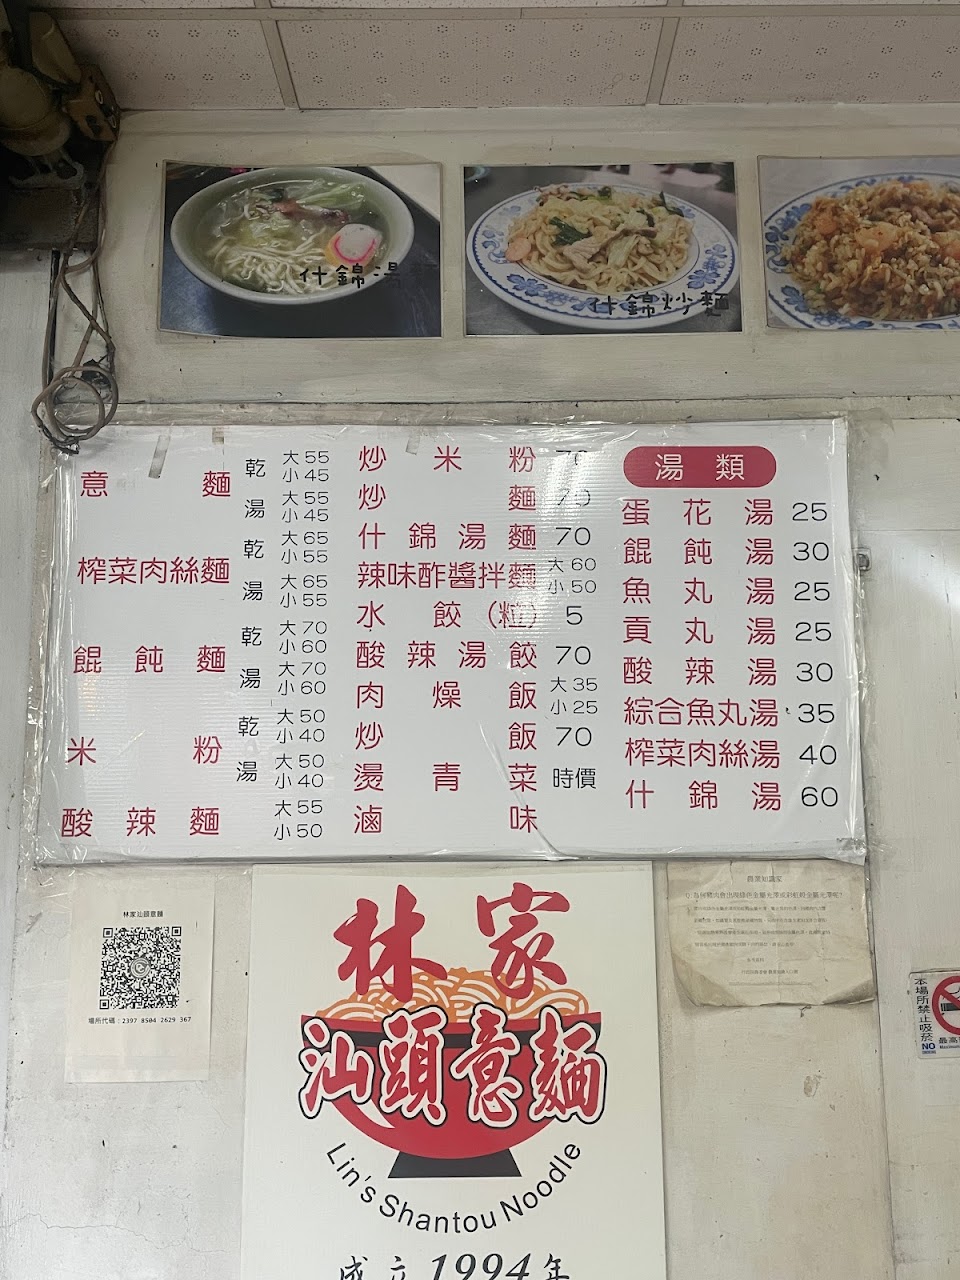 什錦湯麵
什錦炒麵
意麵 乾 大55 小45
湯 大55 小45
榨菜肉絲麵 乾 大65 小55
湯 大65 小55
餛飩麵 乾 大70 小60
湯 大70 小60
米粉 乾 大50 小40
湯 大50 小40
酸辣麵 大55 小50
炒米粉 70
炒麵 70
什錦湯麵 70
辣味酢醬拌麵 大60 小50
水餃(粒) 5
酸辣湯餃 70
肉燥飯 大35 小25
炒飯 70
燙青菜 時價
滷味
湯類
蛋花湯 25
餛飩湯 30
魚丸湯 25
貢丸湯 25
酸辣湯 30
綜合魚丸湯 35
榨菜肉絲湯 40
什錦湯 60
林家汕頭意麵
場所代碼：2397 8504 2629 367
林家
汕頭意麵
Lin's Shantou Noodle
成立1994年
本場所禁止吸菸
NO
最高